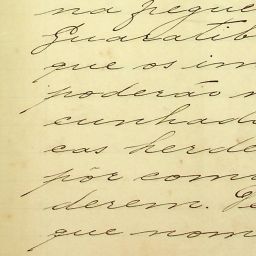 na fregue
Guaratib
que os im
poderão n
cunhad
cas herde
pôr com
derem. Pe
que nom